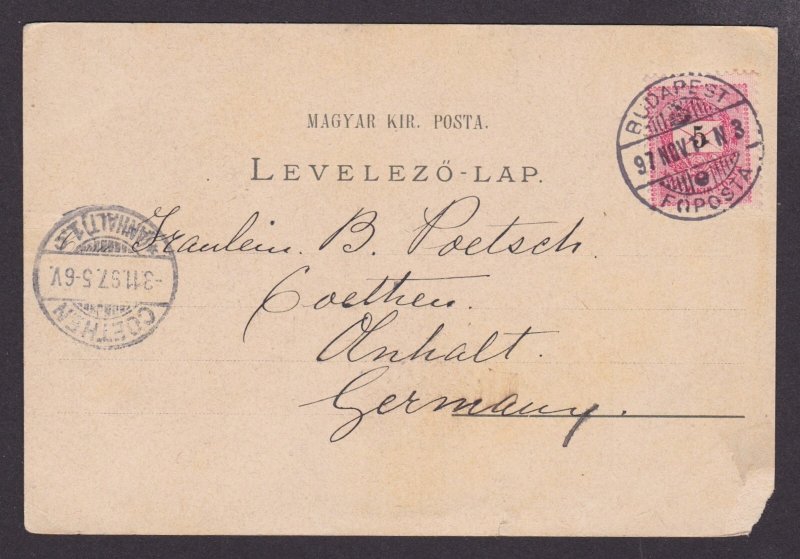 MAGYAR KIR. POSTA.
LEVELEZŐ-LAP.
BUDAPEST
5
97 NOV N 3
FŐPOSTA
Fraulein. B. Poetsch.
Coethen.
Anhalt.
Germany.
COETHEN
-3.11.97.5-6V.
(ANHALT)